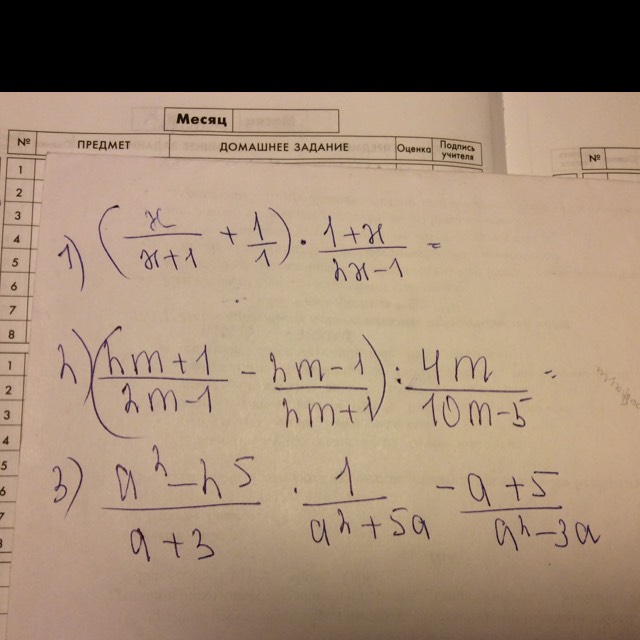 Месяц
№ ПРЕДМЕТ ДОМАШНЕЕ ЗАДАНИЕ Оценка Подпись учителя №
1
2
3
4
5
6
7
8
1
2
3
4
5
6
7
8
1) (x/(x+1) + 1/1) · (1+x)/(2x-1) =
2) ((2m+1)/(2m-1) - (2m-1)/(2m+1)) : 4m/(10m-5) =
3) (a²-25)/(a+3) · 1/(a²+5a) - (a+5)/(a²-3a)